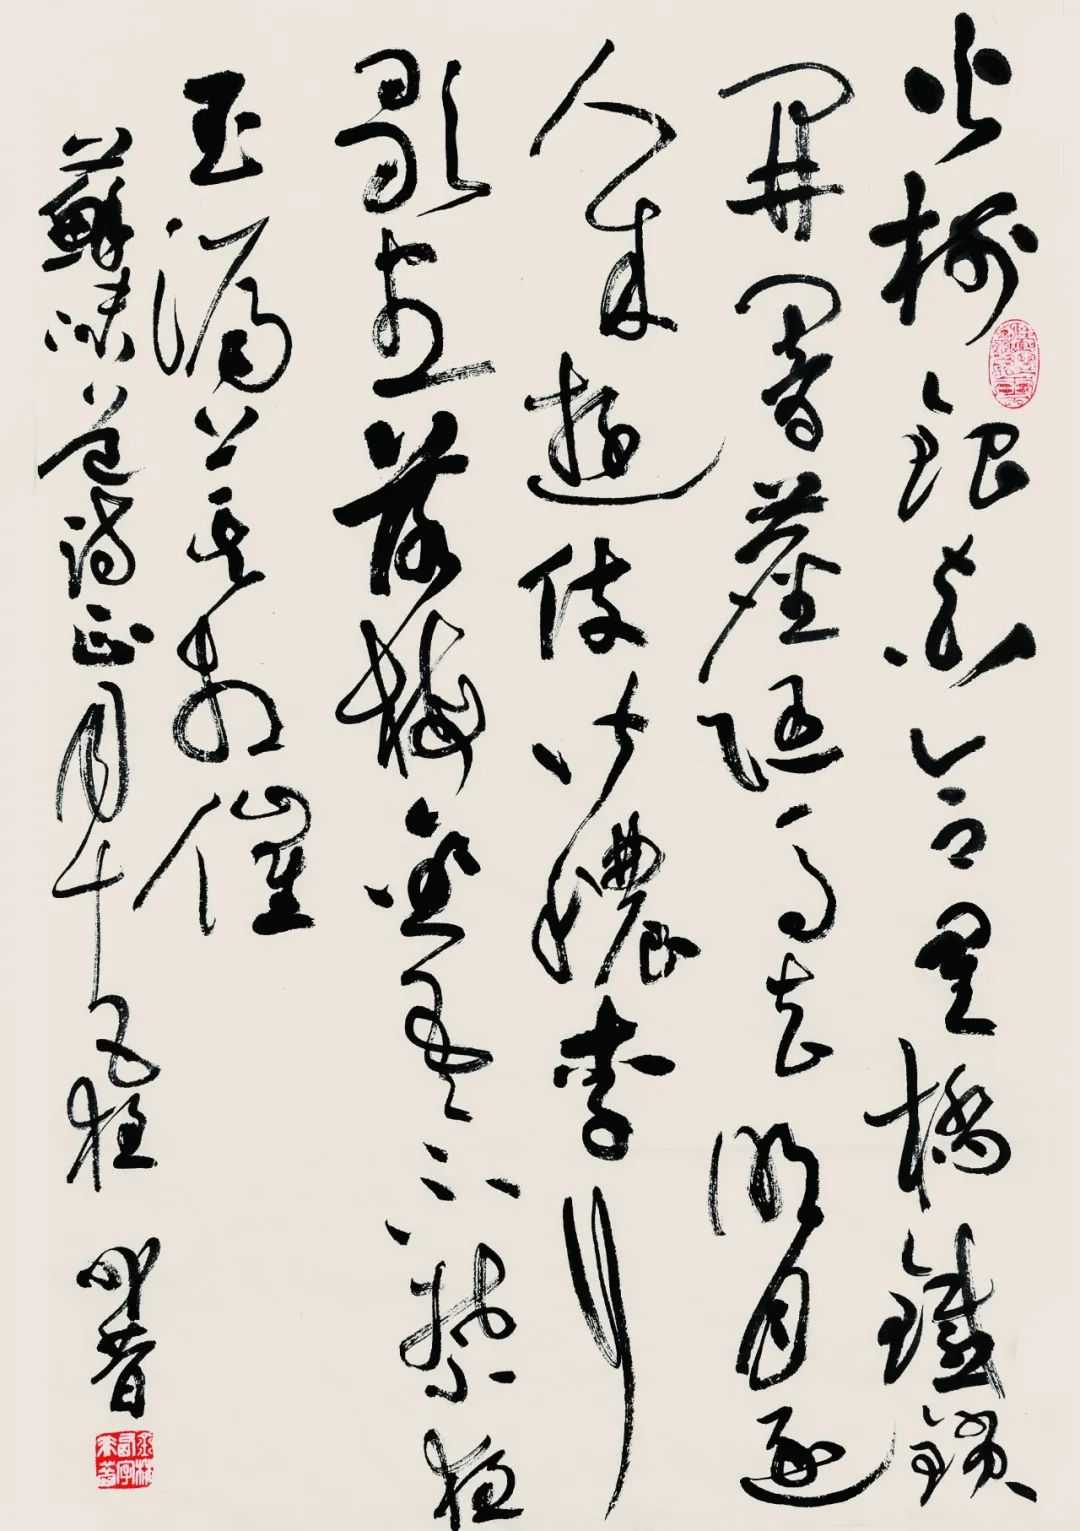 火樹銀花合星橋鐵鎖
開闇塵隨馬去明月逐
人來遊伎皆穠李行
歌盡落梅金吾不禁夜
玉漏莫相催
蘇味道詩正月十五夜